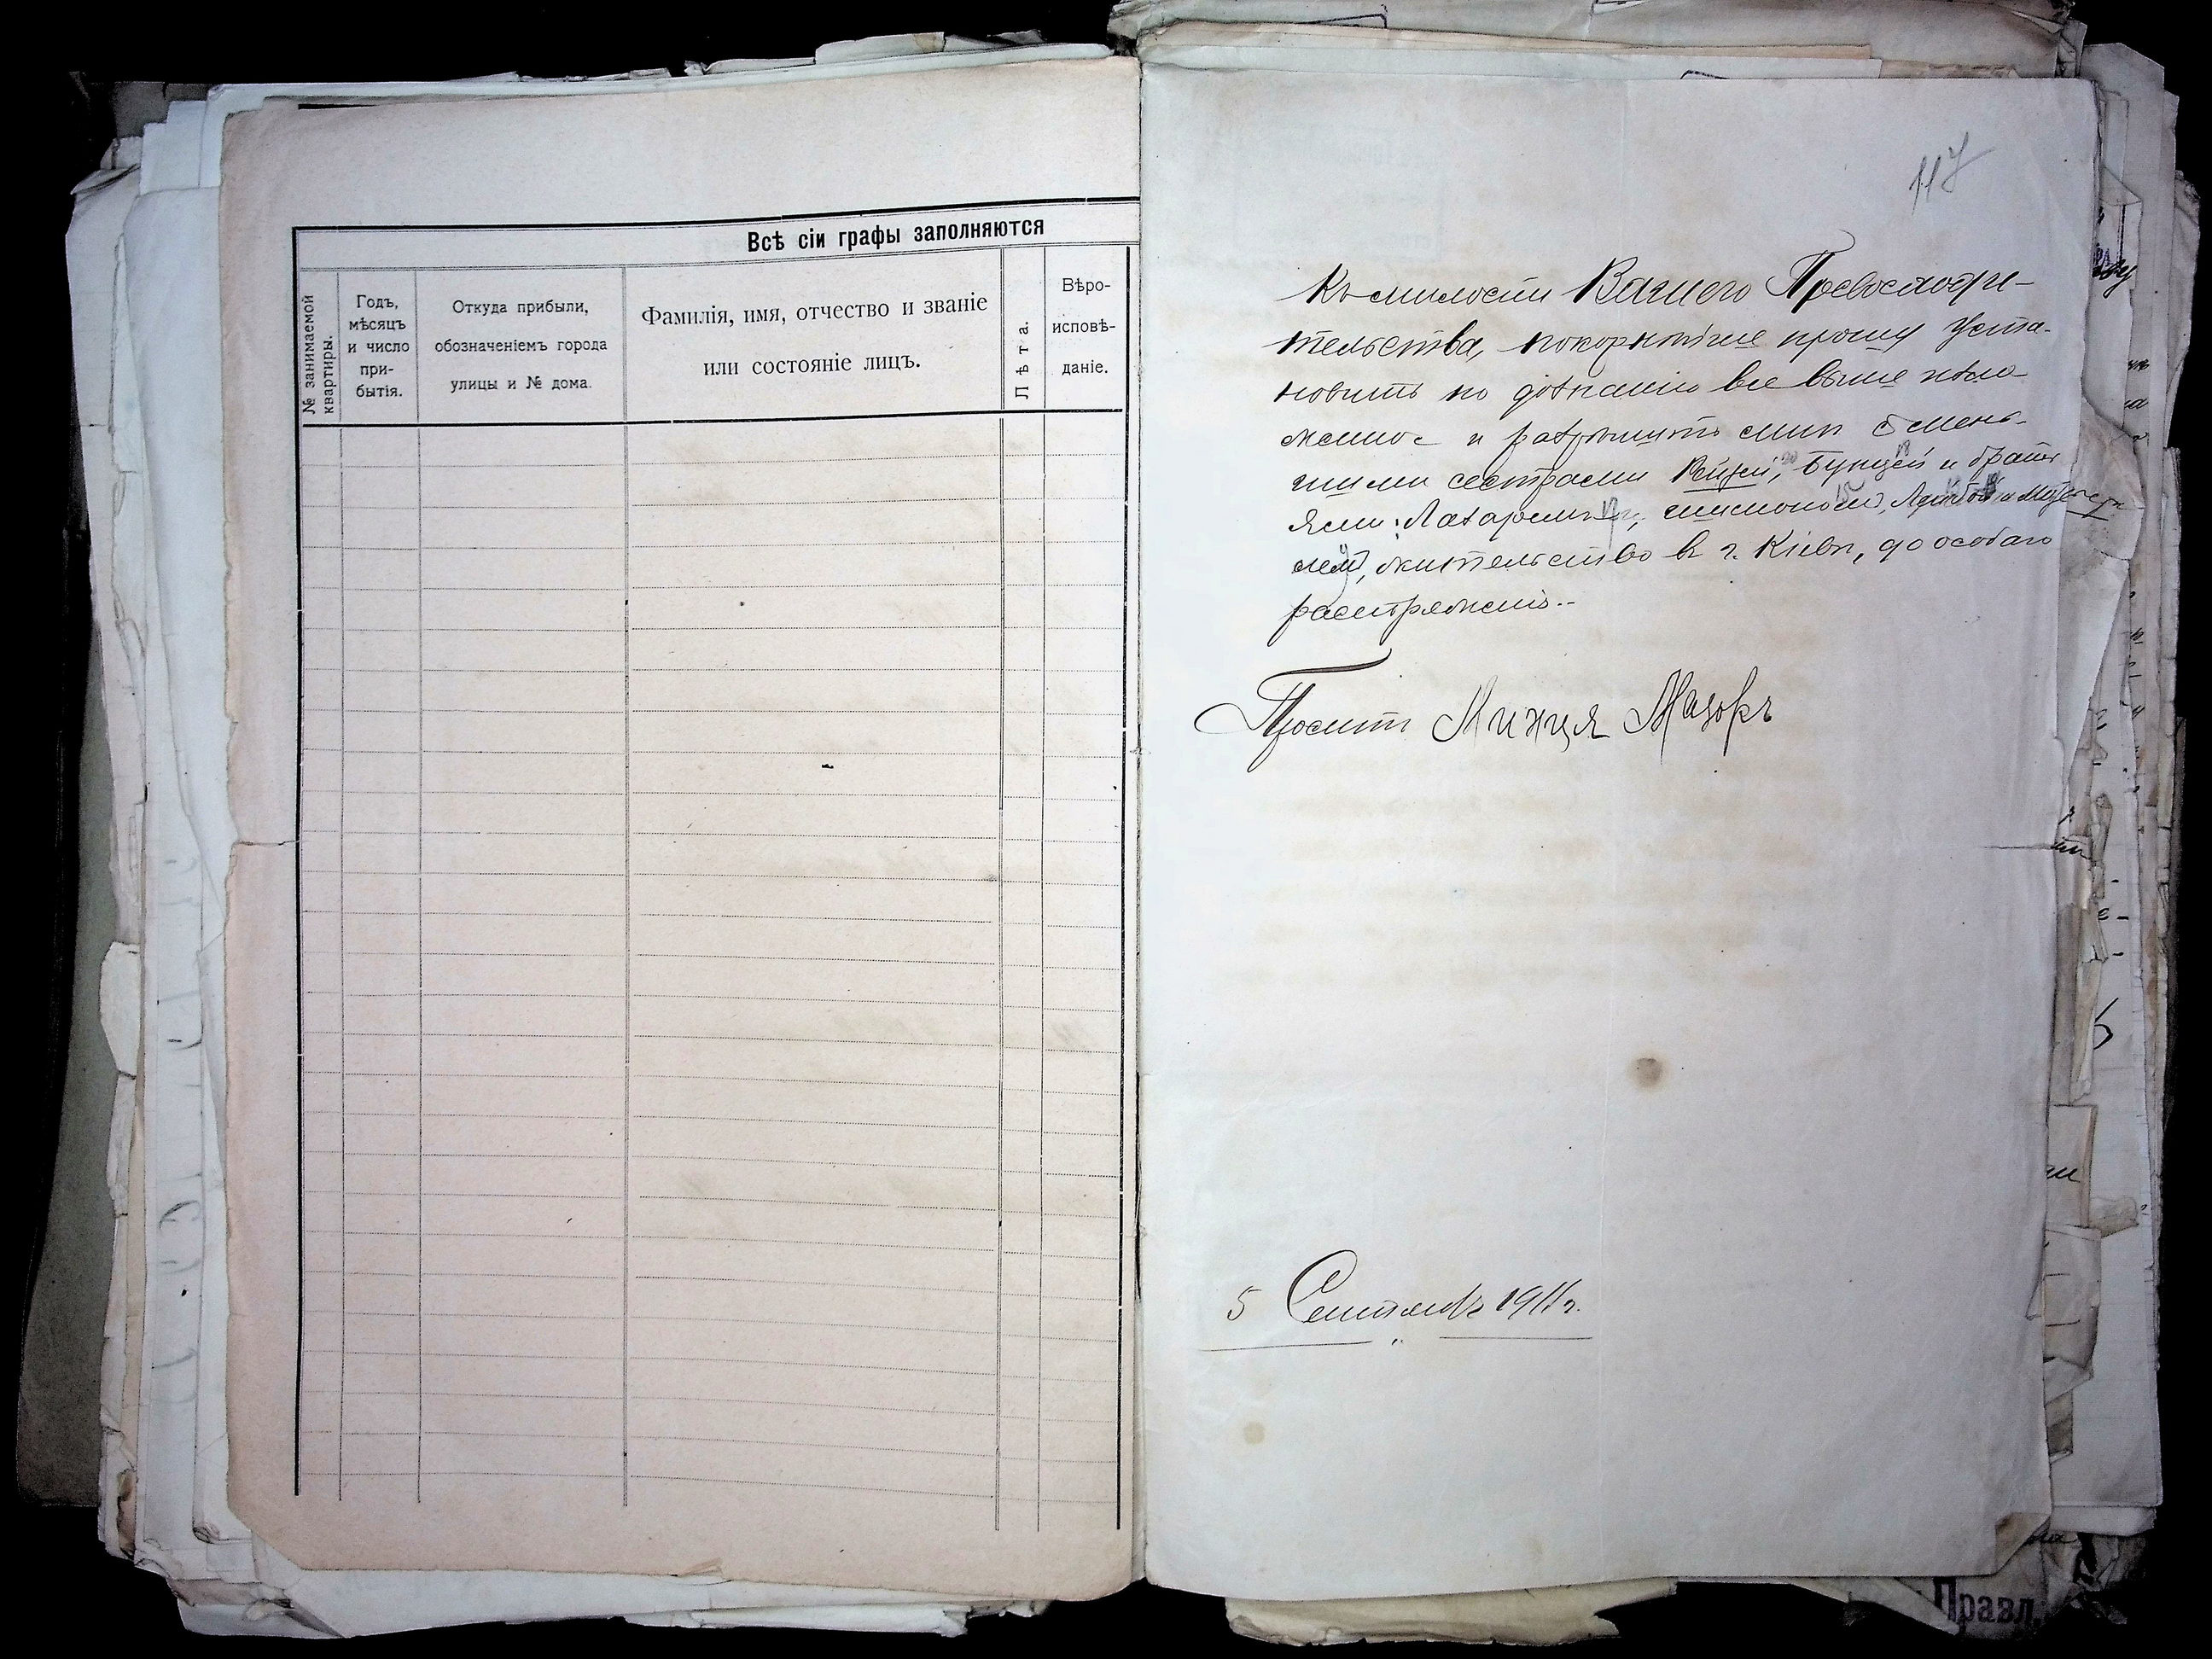 Всѣ сіи графы заполняются
№ занимаемой
квартиры.
Годъ,
мѣсяцъ
и число
при-
бытія.
Откуда прибыли,
обозначеніемъ города
улицы и № дома.
Фамилія, имя, отчество и званіе
или состояніе лицъ.
Лѣта.
Вѣро-
исповѣ-
даніе.
117
Къ милости Вашего Превосходи-
тельства, покорнѣйше прошу уста-
новить по дознанію все выше изло
женное и разрѣшить мнѣ с мень-
шими сестрами и брать
ями: Лазаремъ,
жительство въ г. Кіевѣ, до особаго
распряженія..
Проситъ Минця Мазоръ
5 Сентября 1911 г.
Правл.